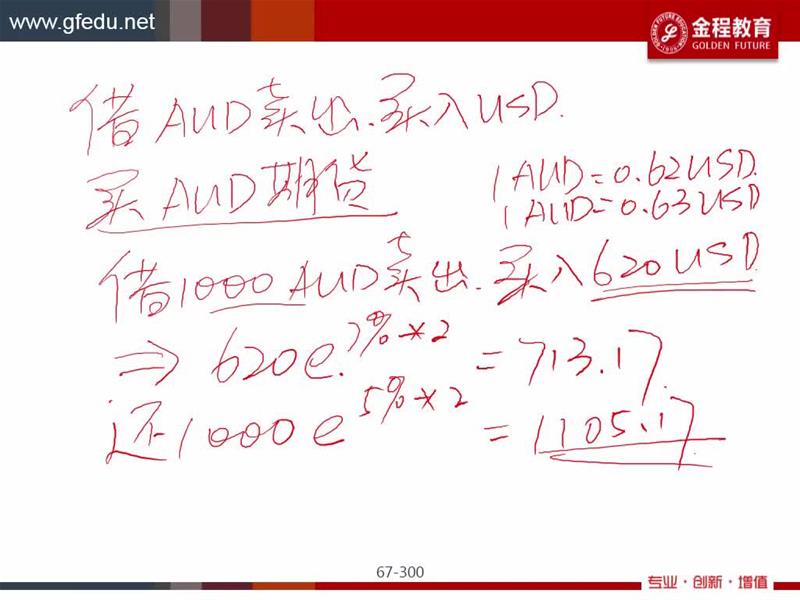 www.gfedu.net
金程教育
GOLDEN FUTURE
借 AUD 卖出.买入USD.
买 AUD 期货
1 AUD=0.62USD.
1 AUD=0.63USD
借1000 AUD卖出.买入620USD.
⇒ 620e^7%×2 = 713.17.
还1000e^5%×2 = 1105.17
67-300
专业·创新·增值